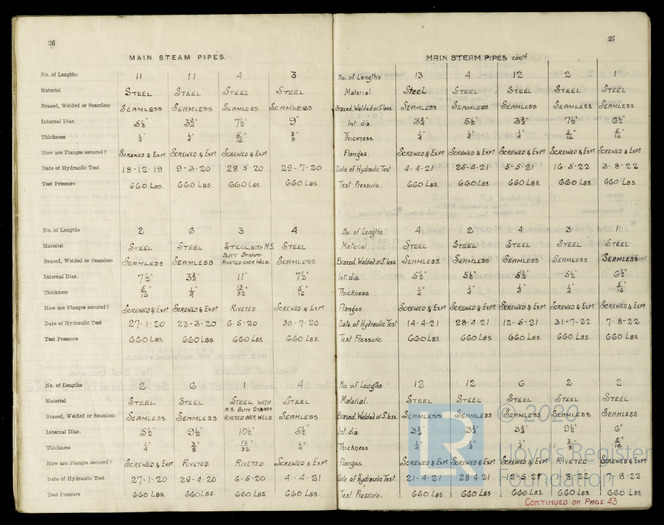 26
MAIN STEAM PIPES.
No. of Lengths 11 11 4 3
Material STEEL STEEL STEEL STEEL
Brazed, Welded or Seamless SEAMLESS SEAMLESS SEAMLESS SEAMLESS
Internal Diar. 5½" 3¾" 7½" 9"
Thickness ¼" ¼" 5/16" 3/8"
How are Flanges secured? SCREWED & EXPd SCREWED & EXPd SCREWED & EXPd
Date of Hydraulic Test 18-12-19 9-3-20 28-5-20 29-7-20
Test Pressure 660 LBS. 660 LBS. 660 LBS. 660 LBS.
No. of Lengths 2 6 3 4
Material STEEL STEEL STEEL, WITH M.S. STEEL
BUTT STRAPS
Brazed, Welded or Seamless SEAMLESS SEAMLESS RIVETED OVER WELD. SEAMLESS
Internal Diar. 7½" 3¾" 11" 5½"
Thickness 5/16" ¼" /32" ¼"
How are Flanges secured? SCREWED & EXPd SCREWED & EXPd RIVETED SCREWED & EXPd
Date of Hydraulic Test 27-1-20 23-3-20 6-5-20 30-7-20
Test Pressure 660 LBS. 660 LBS. 660 LBS. 660 LBS.
No. of Lengths 2 6 1 4
Material STEEL STEEL STEEL WITH STEEL
M.S. BUTT STRAPS
Brazed, Welded or Seamless SEAMLESS SEAMLESS RIVETED OVER WELD. SEAMLESS
Internal Diar. 5½" 9½" 10½" 5½"
Thickness ¼" 3/8" /32" ¼"
How are Flanges secured? SCREWED & EXPd RIVETED RIVETED SCREWED & EXPd
Date of Hydraulic Test 27-1-20 29-4-20 6-5-20 4-4-21
Test Pressure 660 LBS. 660 LBS. 660 LBS. 660 LBS.
27
MAIN STEAM PIPES contd
No. of Lengths 13 4 12 2 1
Material STEEL STEEL STEEL STEEL STEEL
Brazed, Welded or S'less. SEAMLESS SEAMLESS SEAMLESS SEAMLESS SEAMLESS
Int. dia 3¾" 5½" 3¾" 7½" 6½"
Thickness. ¼" ¼" ¼" 5/16" 5/16"
Flanges. SCREWED & EXPd SCREWED & EXPd SCREWED & EXPd SCREWED & EXPd SCREWED & EXPd
Date of Hydraulic Test 4-4-21 25-4-21 5-5-21 16-5-22 3-8-22
Test Pressure. 660 LBS. 660 LBS. 660 LBS. 660 LBS. 660 LBS.
No. of Lengths 4 2 4 3 1
Material STEEL STEEL STEEL STEEL STEEL
Brazed, Welded or S'less. SEAMLESS SEAMLESS SEAMLESS SEAMLESS SEAMLESS
Int. dia 5½" 5½" 5½" 5½" 6½"
Thickness ¼" ¼" ¼" ¼" 5/16"
Flanges SCREWED & EXPd SCREWED & EXPd SCREWED & EXPd SCREWED & EXPd SCREWED & EXPd
Date of Hydraulic Test 14-4-21 28-4-21 12-5-21 31-7-22 7-8-22
Test Pressure 660 LBS. 660 LBS. 660 LBS. 660 LBS. 660 LBS.
No. of Lengths 12 12 6 2 2
Material. STEEL STEEL STEEL STEEL STEEL
Brazed, Welded or S'less. SEAMLESS SEAMLESS SEAMLESS SEAMLESS SEAMLESS
Int. dia. 3¾" 3¾" 3¾" 9½" 6"
Thickness ¼" ¼" ¼"
Flanges SCREWED & EXPd SCREWED & EXPd SCREWED & EXPd RIVETED SCREWED & EXPd
Date of Hydraulic Test 21-4-21 28-4-21 12-5-21 -8-22 -8-22
Test Pressure. 660 LBS. 660 LBS. 660 LBS. 660 LBS. 660 LBS.
CONTINUED ON PAGE 43
© 2020
Lloyd's Register
Foundation